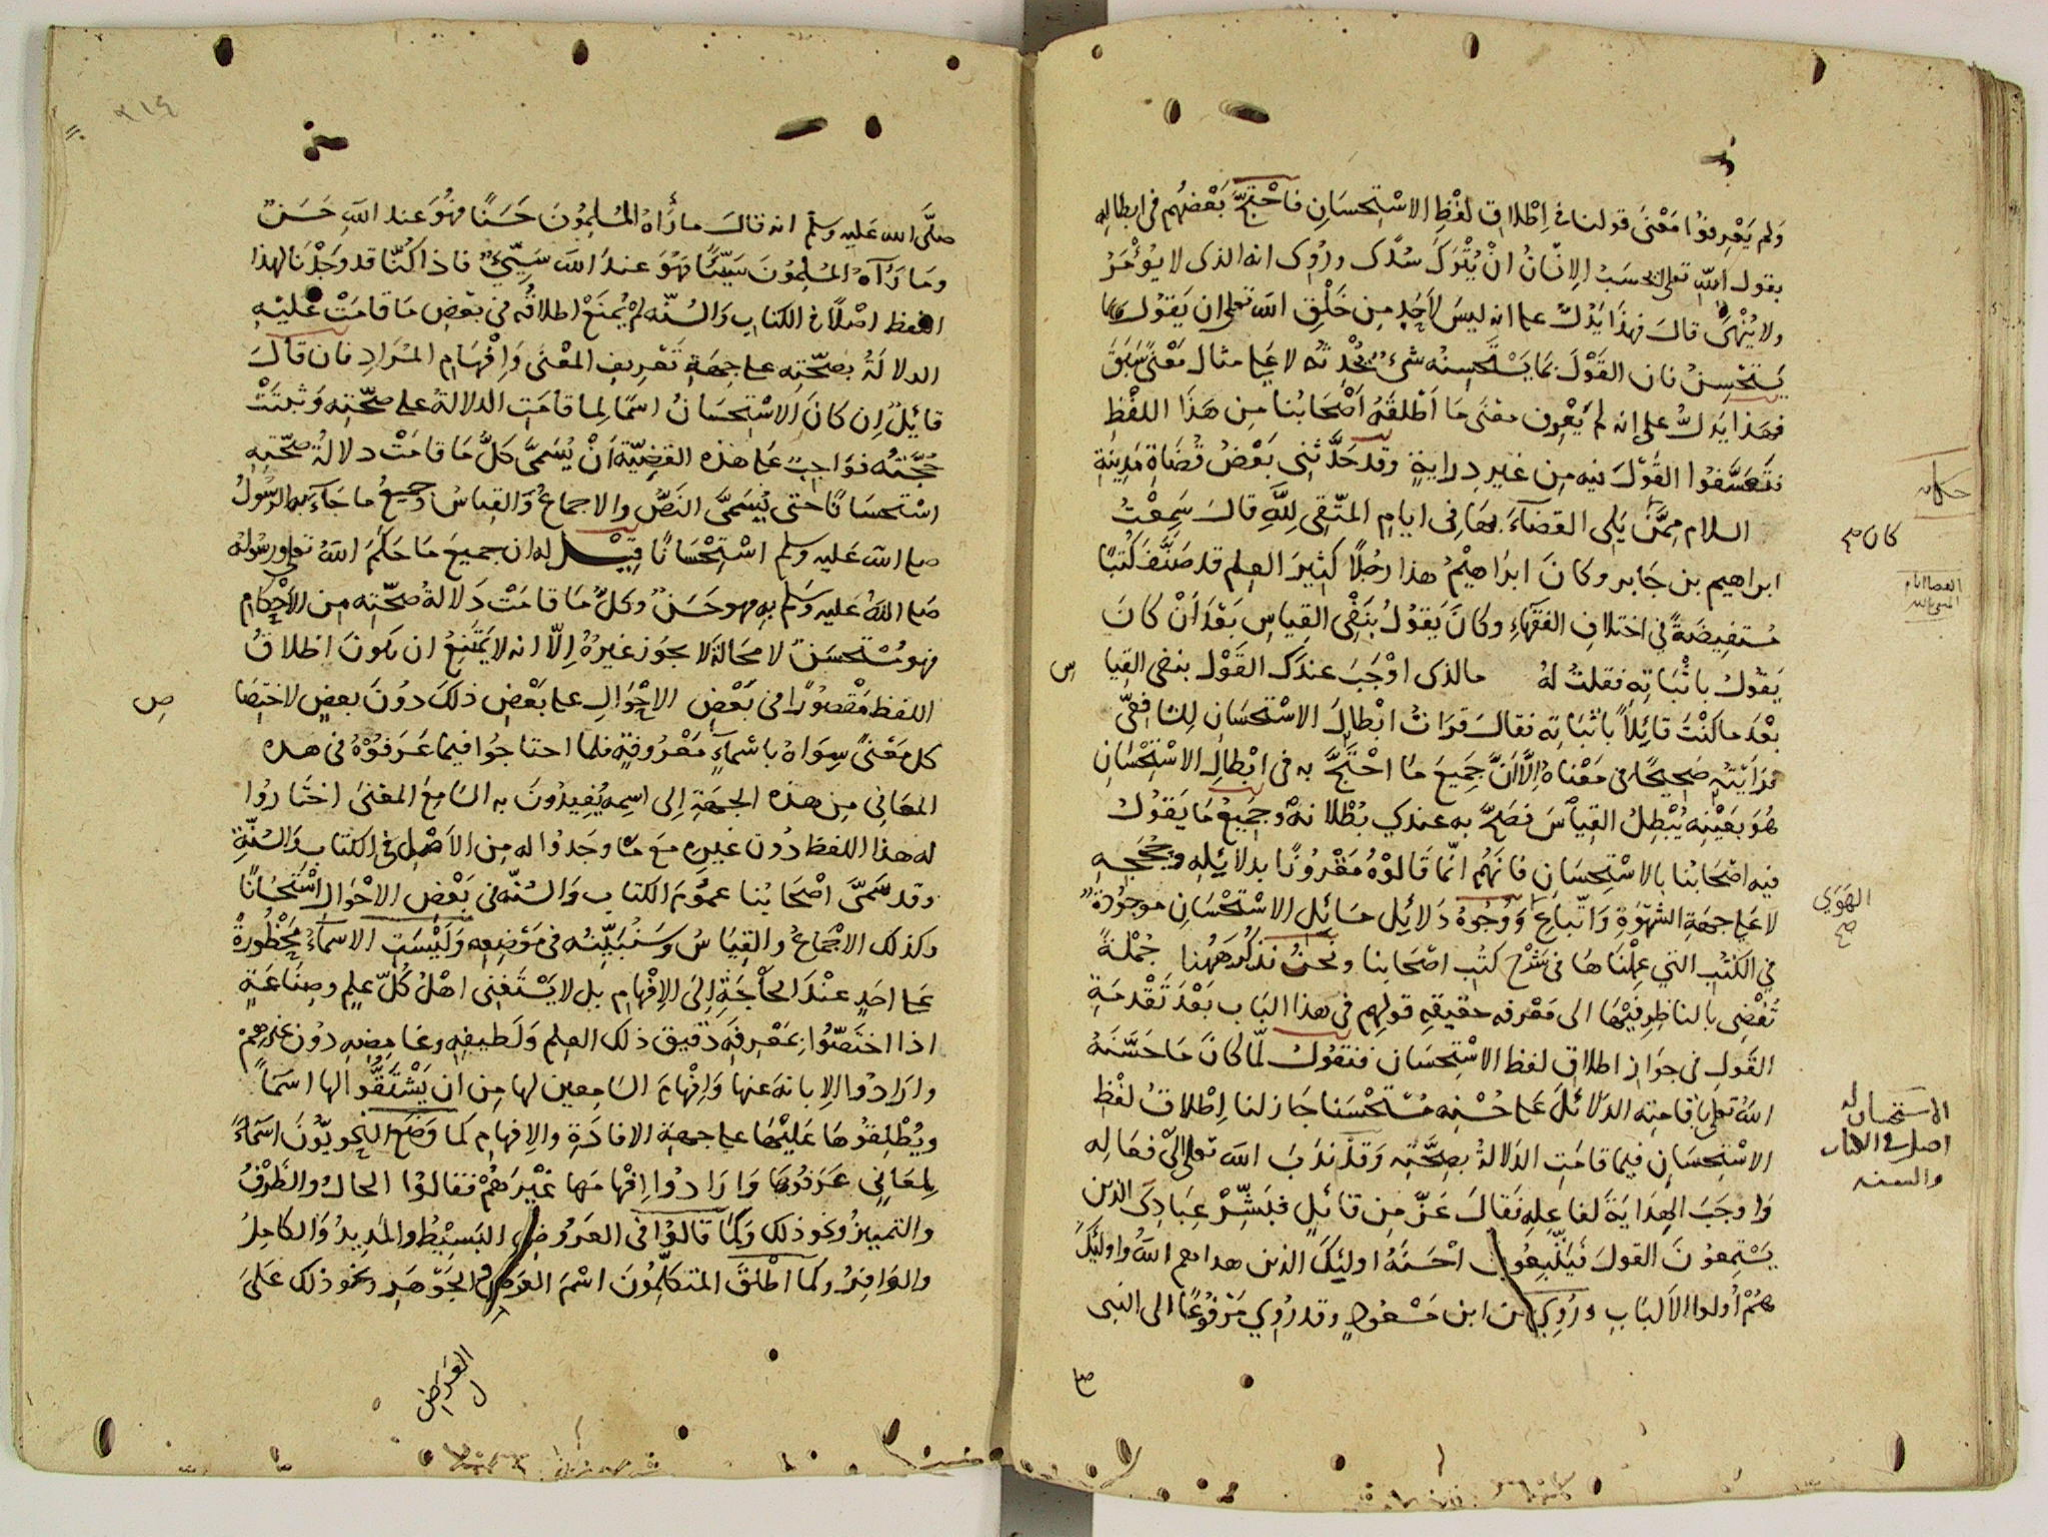 ولم يعرفوا معنى قولنا في اطلاق لفظ الاستحسان فاحتج بعضهم في ابطاله
بقول الله تعالى ايحسب الانسان ان يترك سدى وروى انه الذى لا يؤمر
ولا ينهى قال فهذا يدل على انه ليس لاحد من خلق الله تعالى ان يقول بما
يستحسن فان القول بما يستحسنه شىء يحدثه لا على مثال معنى سبق
فهذا يدل على انه لم يعرف معنى ما اطلقه اصحابنا من هذا اللفظ
فتعسفوا القول فيه من غير دراية وقد حدثنى بعض قضاة مدينة
السلام ممن يلى القضاء بها فى ايام المتقى لله قال سمعت
ابراهيم بن جابر وكان ابراهيم هذا رجلا كثير العلم قد صنف كتبا
مستفيضة في اختلاف الفقهاء وكان يقول بنفى القياس بعد ان كان
يقول باثباته فقلت له مالذى اوجب عندك القول بنفى القيا س
بعد ما كنت قائلا باثباته فقال قرات ابطال الاستحسان للشافعى
فرايته صحيحا فى معناه الا ان جميع ما احتج به فى ابطال الاستحسان
هو بعينه يبطل القياس فصح به عندي بطلانه وجميع ما يقول
فيه اصحابنا بالاستحسان فانهم انما قالوه مقرونا بدلائله وحججه
لا على جهة الشهوة واتباع ووجوه دلائل مسائل الاستحسان موجودة
في الكتب التي عملناها فى شرح كتب اصحابنا ونحن نذكر ههنا جملة
تفضى بالناظر فيها الى معرفه حقيقه قولهم فى هذا الباب بعد تقدمة
القول فى جواز اطلاق لفظ الاستحسان فنقول لما كان ما حسنه
الله تعالى باقامته الدلائل على حسنه مستحسنا جاز لنا اطلاق لفظ
الاستحسان فيما قامت الدلالة بصحته وقد ندب الله تعالى الى فعاله
واوجب الهداية لفاعله فقال عز من قائل فبشر عبادى الذين
يستمعون القول فيتبعون احسنه اولئك الذين هداهم الله واولئك
هم أولوا الالباب وروي عن ابن مسعود وقد روي مرفوعا الى النبى
كان صح
الهوي
صح
الاستحسان له
اصل فى الكتاب
والسنه
٣١٤
صلى الله عليه وسلم انه قال ما رأه المسلمون حسنا فهو عند الله حسن
وما رآه المسلمون سيئا فهو عند الله سيئ فاذا كنا قد وجدنا لهذا
اللفظ اصلا في الكتاب والسنه لم يمنع اطلاقه فى بعض ما قامت عليه
الدلالة بصحته على جهة تعريف المعنى وافهام المراد فان قال
قائل ان كان الاستحسان اسما لما قامت الدلالة على صحته وثبتت
حجته فواجب على هذه القضية أن يسمى كل ما قامت دلالة صحته
استحسانا حتى يسمى النص والاجماع والقياس وجميع ما جاء به الرسول
صلى الله عليه وسلم استحسانا قيل له ان جميع ما حكم الله تعالى ورسوله
صلى الله عليه وسلم به فهو حسن وكل ما قامت دلالة صحته من الاحكام
فهو مستحسن لا محالة لا يجوز غيره الا انه لا يمتنع ان يكون اطلاق
اللفظ مقصورا فى بعض الاحوال على بعض ذلك دون بعض لاختصا ص
كل معنى سواه باسماء معروفة فلما احتاجوا فيما عرفوه فى هذه
المعانى من هذه الجهة الى اسم يفيدون به السامع المعنى اختاروا
له هذا اللفظ دون غيره مع ما وجدوا له من الاصل فى الكتاب والسنة
وقد سمى اصحابنا عموم الكتاب والسنه فى بعض الاحوال استحسانا
وكذلك الاجماع والقياس وسنبينه فى موضعه وليست الاسماء محظورة
على احد عند الحاجة الى الافهام بل لا يستغنى اهل كل علم وصناعة
اذا اختصوا بمعرفة دقيق ذلك العلم ولطيفه وغامضه دون غيرهم
وارادوا الابانة عنها وافهام السامعين لها من ان يشتقوا لها اسما
ويطلقوها عليها على جهة الافادة والافهام كما وضع النحويون اسماء
لمعانى عرفوها وارادوا افهامها غيرهم فقالوا الحال والظرف
والتمييز ونحو ذلك وكما قالوا فى العروض البسيط والمديد والكامل
والوافر وكما اطلق المتكلمون اسم العرض والجوهر ونحو ذلك على
العرض